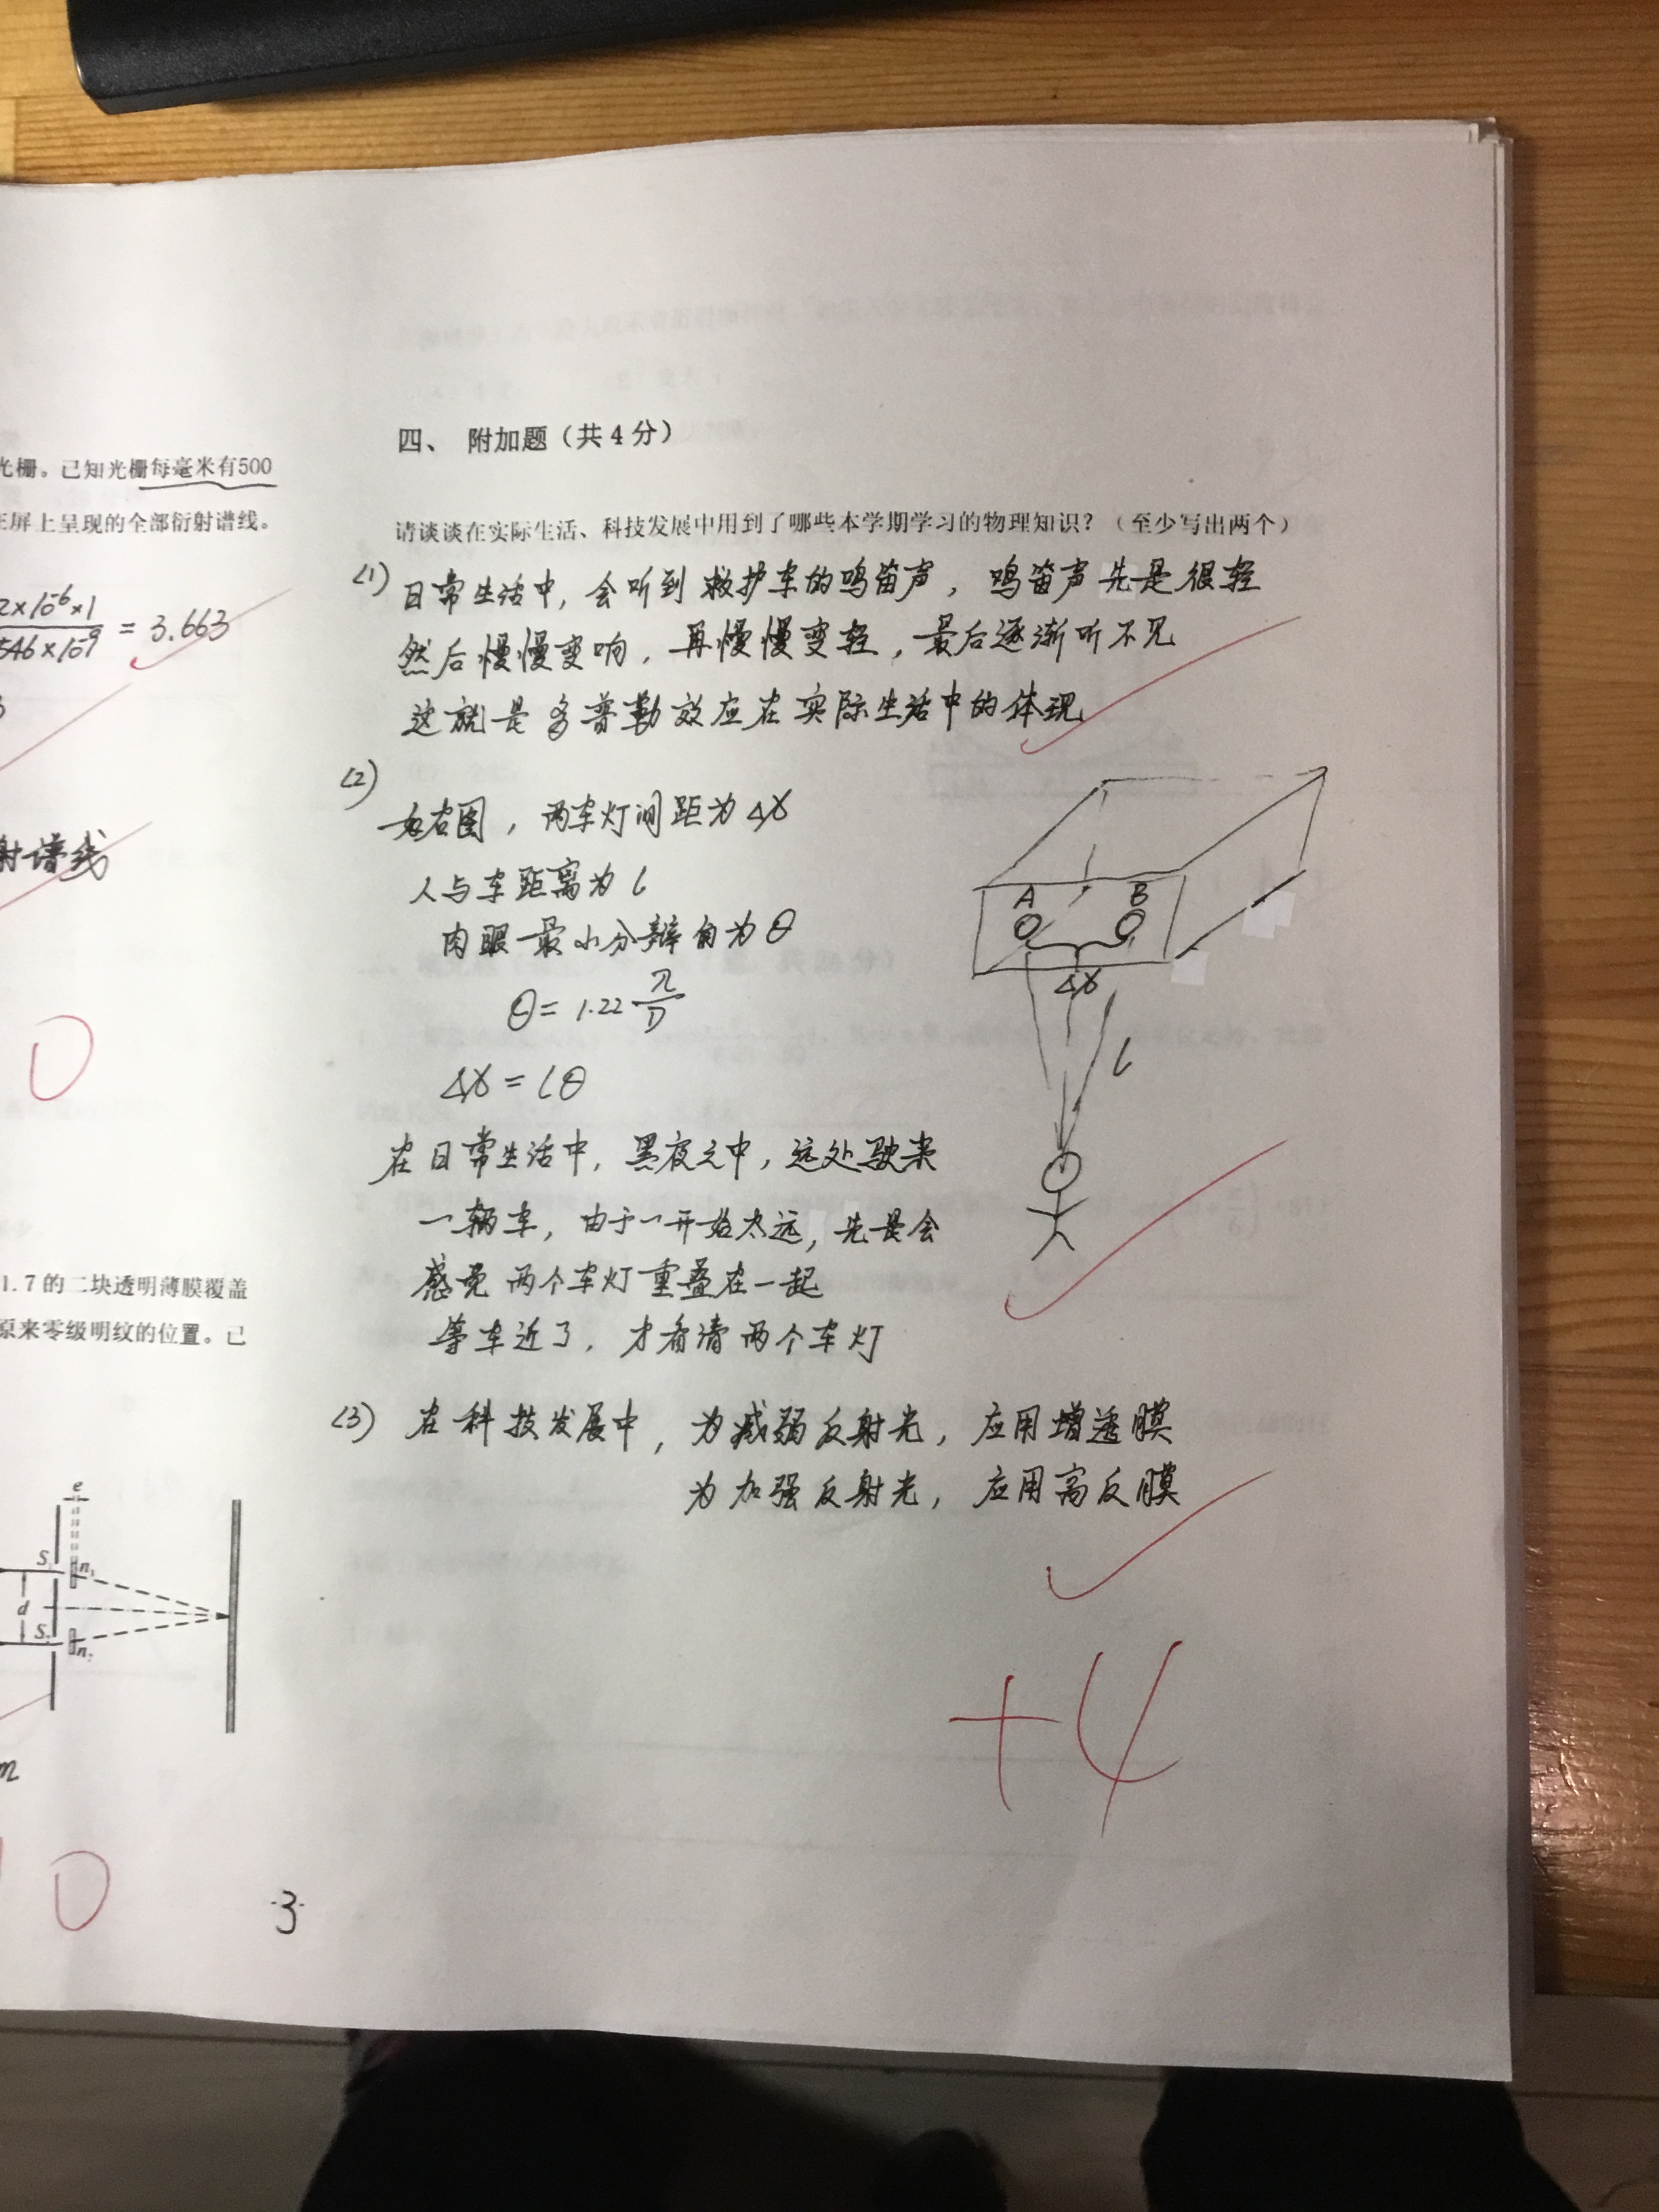 光栅。已知光栅每毫米有500
屏上呈现的全部衍射谱线。
2×10⁻⁶×1
546×10⁻⁹
= 3.663
射谱线
0
1.7的二块透明薄膜覆盖
原来零级明纹的位置。已
e
S₁
n₁
d
S₂
n₂
m
0
·3·
四、 附加题（共4分）
请谈谈在实际生活、科技发展中用到了哪些本学期学习的物理知识？（至少写出两个）
(1) 日常生活中，会听到救护车的鸣笛声，鸣笛声先是很轻
然后慢慢变响，再慢慢变轻，最后逐渐听不见
这就是多普勒效应在实际生活中的体现
(2)
如右图，两车灯间距为Δx
人与车距离为l
肉眼最小分辨角为θ
θ= 1.22 λ/D
Δx = lθ
在日常生活中，黑夜之中，远处驶来
一辆车，由于一开始太远，先是会
感觉两个车灯重叠在一起
等车近了，才看清两个车灯
A B
Δx
l
(3) 在科技发展中，为减弱反射光，应用增透膜
为加强反射光，应用高反膜
+4